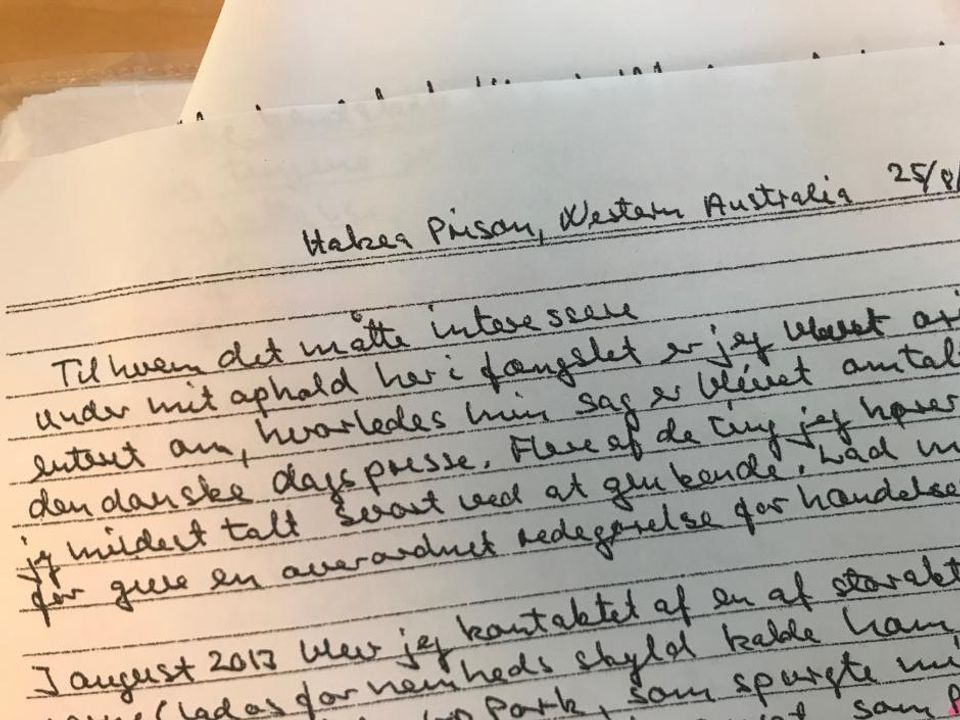 Hakea Prison, Western Australia 25/8/
Til hvem det måtte interessere
under mit ophold her i fængslet er jeg blevet ori
enteret om, hvorledes min sag er blevet omtalt
den danske dagspresse. Flere af de ting jeg hører
jeg mildest talt svært ved at genkende. Lad m
for give en overordnet redegørelse for handelse
I august 2013 blev jeg kontaktet af en af storakt
lad os for nemheds skyld kalde ham
Park, som spurgte mi
som